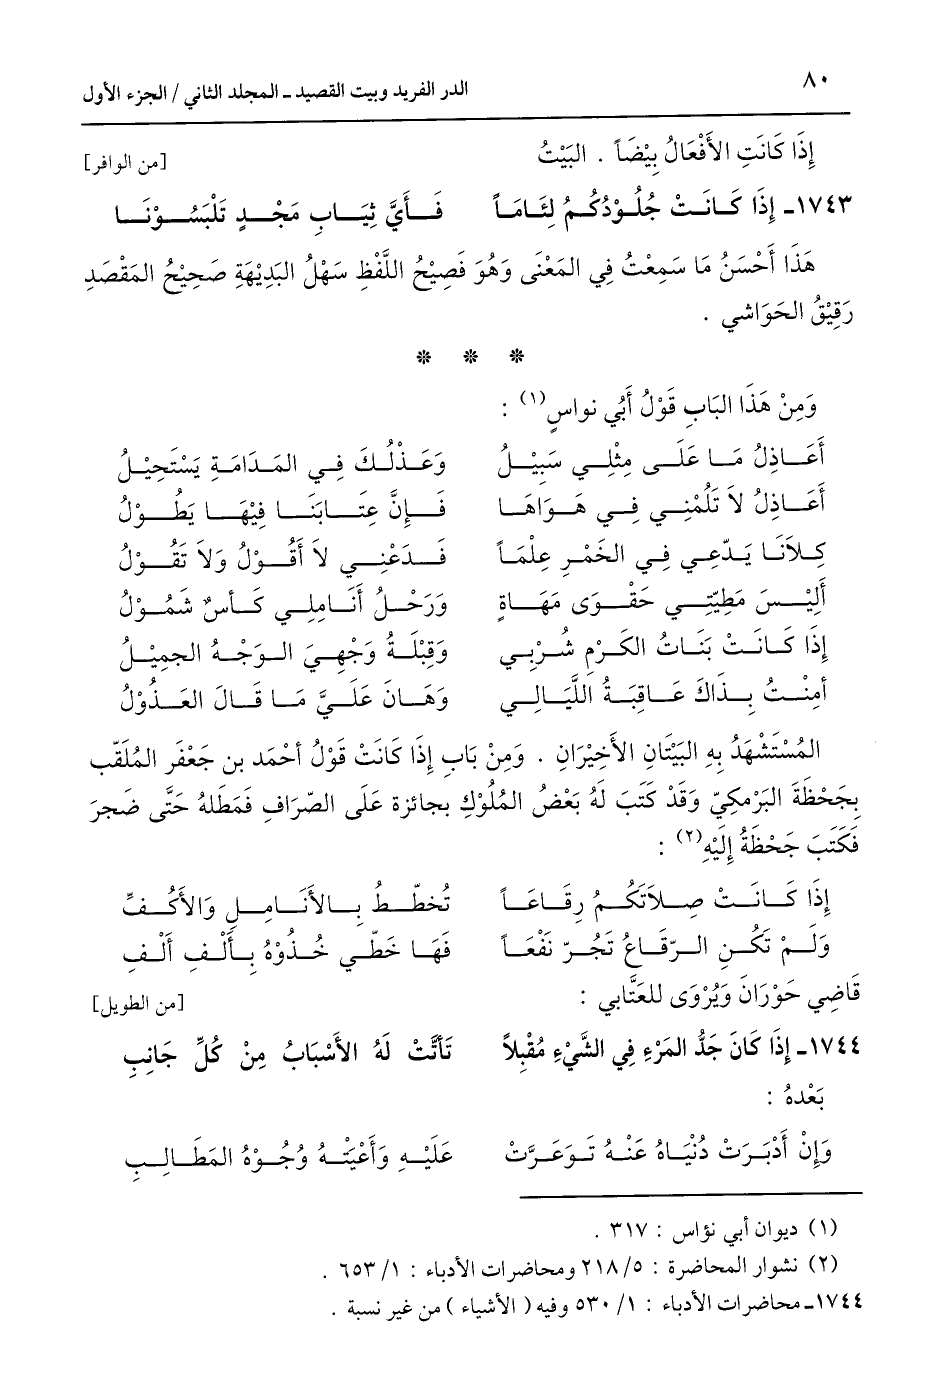 ٨٠ الدر الفريد وبيت القصيد ـ المجلد الثاني / الجزء الأول
إِذَا كَانَتِ الأَفْعَالُ بِيْضَاً . البَيْتُ [من الوافر]
١٧٤٣ـ إِذَا كَـانَـتْ جُلُـوْدُكُـمُ لِئَـامَـاً فَـأَيَّ ثِيَـابِ مَجْـدٍ تَلْبَسُـوْنَـا
هَذَا أَحْسَنُ مَا سَمِعْتُ فِي المَعْنَى وَهُوَ فَصِيْحُ اللَّفْظِ سَهْلُ البَدِيْهَةِ صَحِيْحُ المَقْصَدِ
رَقِيْقُ الحَوَاشِي .
* * *
وَمِنْ هَذَا البَابِ قَوْلُ أَبُي نواسٍ(١) :
أَعَـاذِلُ مَـا عَلَـى مِثْلِـي سَبِيْـلُ وَعَـذْلُـكَ فِـي المَـدَامَـةِ يَسْتَحِيْـلُ
أَعَـاذِلُ لاَ تَلُمْنِـي فِـي هَـوَاهَـا فَـإِنَّ عِتَـابَنَـا فِيْهَـا يَطُـوْلُ
كِلاَنَـا يَـدَّعِـي فِـي الخَمْـرِ عِلْمَـاً فَـدَعْنِـي لاَ أَقُـوْلُ وَلاَ تَقُـوْلُ
أَلَيْـسَ مَطِيَّتِـي حَقْـوَى مَهَـاةٍ وَرَحْـلُ أَنَـامِلِـي كَـأسٌ شَمُـوْلُ
إِذَا كَـانَـتْ بَنَـاتُ الكَـرْمِ شُـرْبِـي وَقِبْلَـةُ وَجْهِـيَ الـوَجْـهُ الجَمِيْـلُ
أَمِنْـتُ بِـذَاكَ عَـاقِبَـةَ اللَّيَـالِـي وَهَـانَ عَلَـيَّ مَـا قَـالَ العَـذُوْلُ
المُسْتَشْهَدُ بِهِ البَيْتَانِ الأَخِيْرَانِ . وَمِنْ بَابِ إِذَا كَانَتْ قَوْلُ أحْمَد بن جَعْفَر المُلَقَّب
بِجَحْظَةَ البَرْمكِيّ وَقَدْ كَتَبَ لَهُ بَعْضُ المُلُوْكِ بجائزة عَلَى الصّرَافِ فَمَطَلهُ حَتَّى ضَجرَ
فَكَتَبَ جَحْظَةُ إِلَيْهِ(٢) :
إِذَا كَـانَـتْ صِـلاَتَكُـمُ رِقَـاعَـاً تُخطّـطُ بِـالأَنَـامِـلِ وَالأَكُـفِّ
وَلَـمْ تَكُـنِ الـرّقَـاعُ تَجُـرّ نَفْعَـاً فَهَـا خَطّـي خُـذُوْهُ بِـأَلْـفِ أَلْـفِ
قَاضِي حَوْرَانَ وَيُرْوَى للعَتَّابي : [من الطويل]
١٧٤٤ـ إِذَا كَانَ جَدُّ المَرْءِ فِي الشَّيْءِ مُقْبِلاً تَأتَّتْ لَهُ الأَسْبَابُ مِنْ كُلِّ جَانِبِ
بَعْدهُ :
وَإِنْ أَدْبَـرَتْ دُنْيَـاهُ عَنْـهُ تَـوَعَـرَّتْ عَلَيْـهِ وَأَعْيَتْـهُ وُجُـوْهُ المَطَـالِـبِ
(١) ديوان أبي نؤاس : ٣١٧ .
(٢) نشوار المحاضرة : ٥/ ٢١٨ ومحاضرات الأدباء : ١/ ٦٥٣ .
١٧٤٤ـ محاضرات الأدباء : ١/ ٥٣٠ وفيه ( الأشياء ) من غير نسبة .